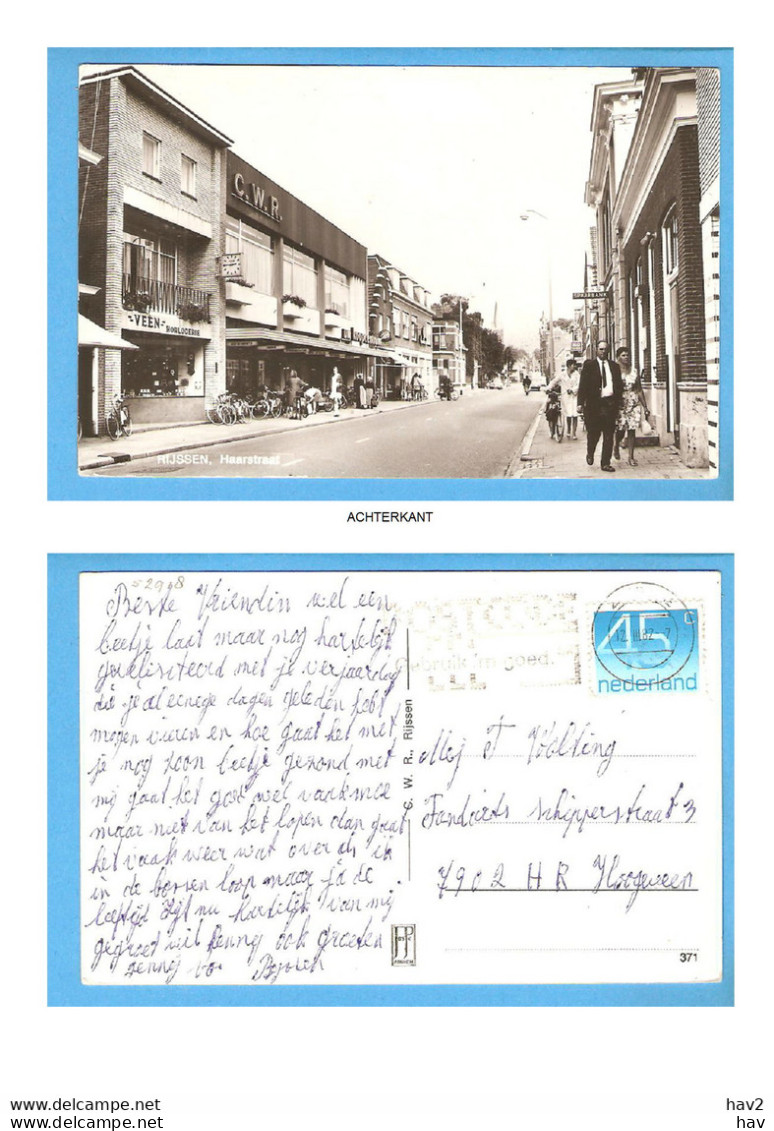 C.W.R.
-VEEN-
HORLOGERIE
SPAARBANK
RIJSSEN, Haarstraat
ACHTERKANT
5298
Beste Vriendin wel een
beetje laat maar nog hartelijk
gefeliciteerd met je verjaardag
die je al eenege dagen geleden hebt
mogen vieren en hoe gaat het met
je nog zoon beetje gezond met
mij gaat het goed wel vaak moe
maar niet van het lopen dan gaat
het vaak weer wat over als ik
in de bossen loop maar ja de
leeftijd zijt nu Hartelijk van mij
gegroet wil Jenny ook groeten
Jenny
POSTCODE
Gebruik 'm goed.
45 c
nederland
C. W. R., Rijssen
Mej T Wolting
schipperstraat 3
7902 HR Hoogeveen
371
hav2
hav
www.delcampe.net
www.delcampe.net